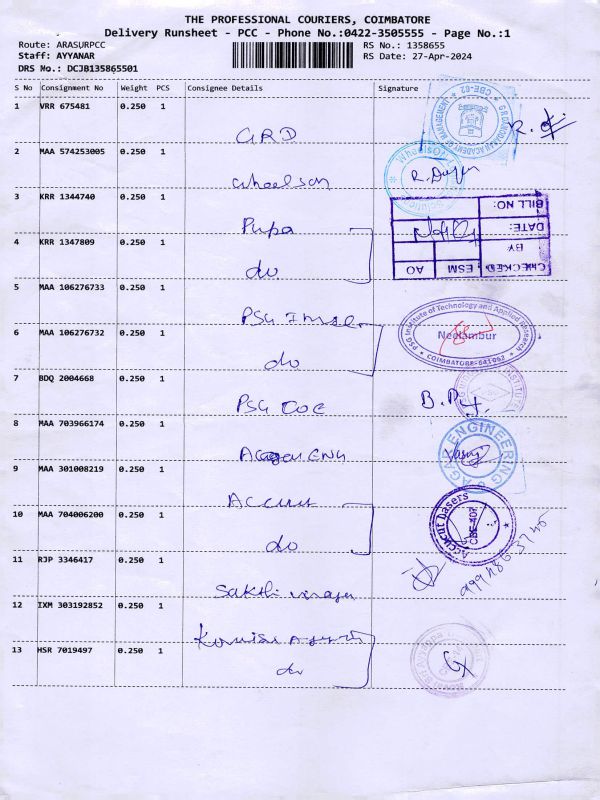 THE PROFESSIONAL COURIERS, COIMBATORE
Delivery Runsheet - PCC - Phone No.:0422-3505555 - Page No.:1
Route: ARASURPCC
Staff: AYYANAR
DRS No.: DCJB135865501
RS No.: 1358655
RS Date: 27-Apr-2024
S No Consignment No Weight PCS Consignee Details Signature
1 VRR 675481 0.250 1
GRD
2 MAA 574253005 0.250 1
wheelson
3 KRR 1344740 0.250 1
Pupa
4 KRR 1347809 0.250 1
do
5 MAA 106276733 0.250 1
PSG
6 MAA 106276732 0.250 1
do
7 BDQ 2004668 0.250 1
PSG COE
8 MAA 703966174 0.250 1
9 MAA 301008219 0.250 1
Accut
10 MAA 704006200 0.250 1
do
11 RJP 3346417 0.250 1
Sakthi
12 IXM 303192852 0.250 1
13 HSR 7019497 0.250 1
do
G R DAMODARAN ACADEMY OF MANAGEMENT
CBE-62
BILL NO:
DATE:
BY
CHECKED ESM AO
PSG Institute of Technology and Applied Research
Neelambur
COIMBATORE-641 062
AGAN ENGINEERING
Accucut Lasers
CBE-407